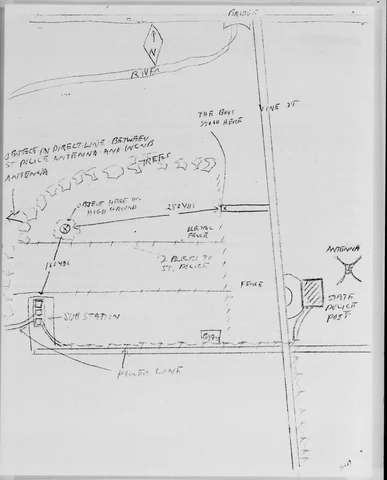 BRIDGE
N
RIVER
VINE ST
THE BOYS
STOOD HERE
OBJECT IN DIRECT LINE BETWEEN
ST. POLICE ANTENNA AND WCND
ANTENNA
TREES
OBJECT HERE ON
HIGH GROUND
250 YDS
FENCE
2 BLOCKS TO
ST. POLICE
ANTENNA
FENCE
STATE
POLICE
POST
SUB STATION
POWER LINE